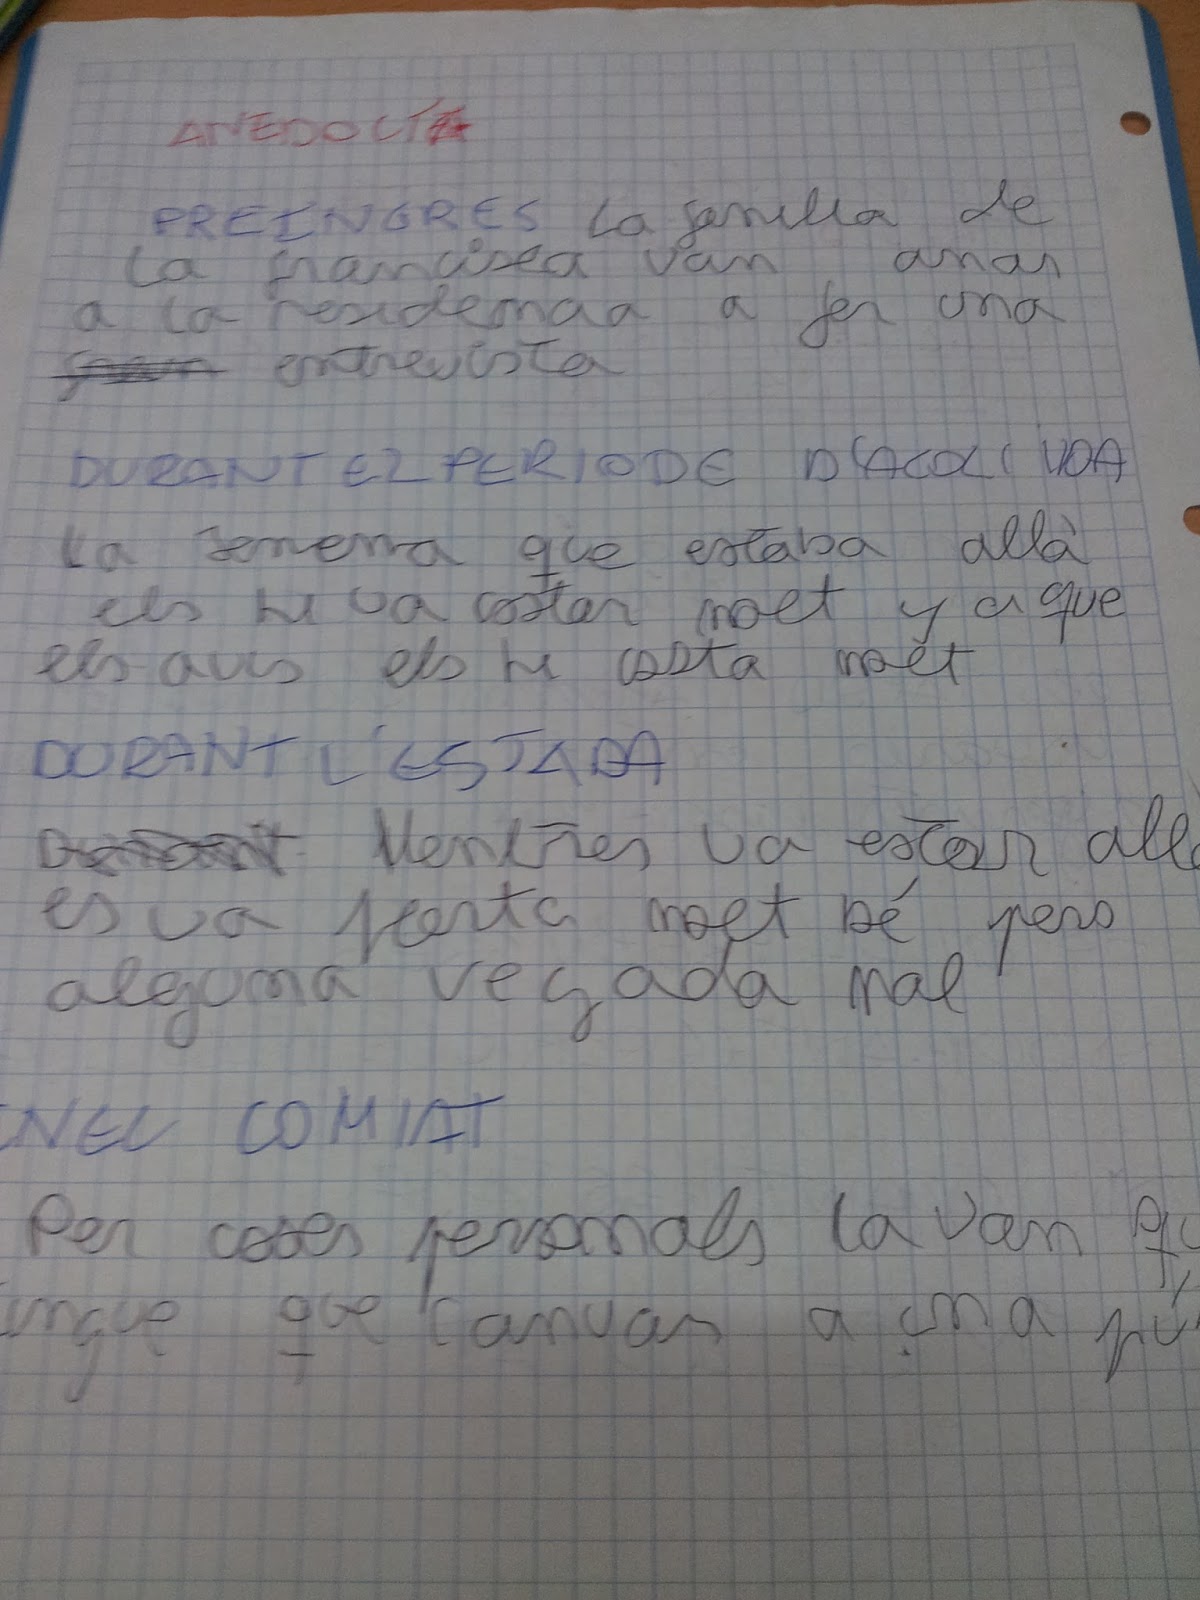 ANEDOCTA
PREINGRES La familia de
La francisca van anar
a la residencia a fer una
entrevista
DURANT EL PERIODE D'ACOLLIUDA
La semena que estaba allà
els hi va costar molt ya que
els avis els hi costa molt
DURANT L'ESTADA
Mentres va estar allà
es va porta molt bé pero
alguna vegada mal
EN EL COMIAT
Per coses personals la van
que canviar a una